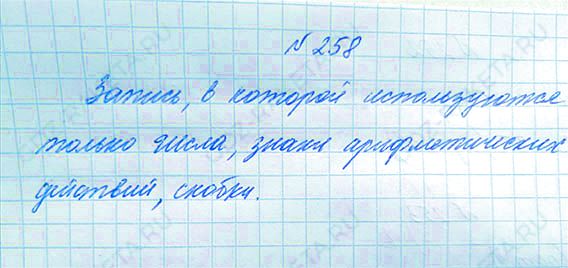 № 258
Запись, в которой используются
только числа, знаки арифметических
действий, скобки.